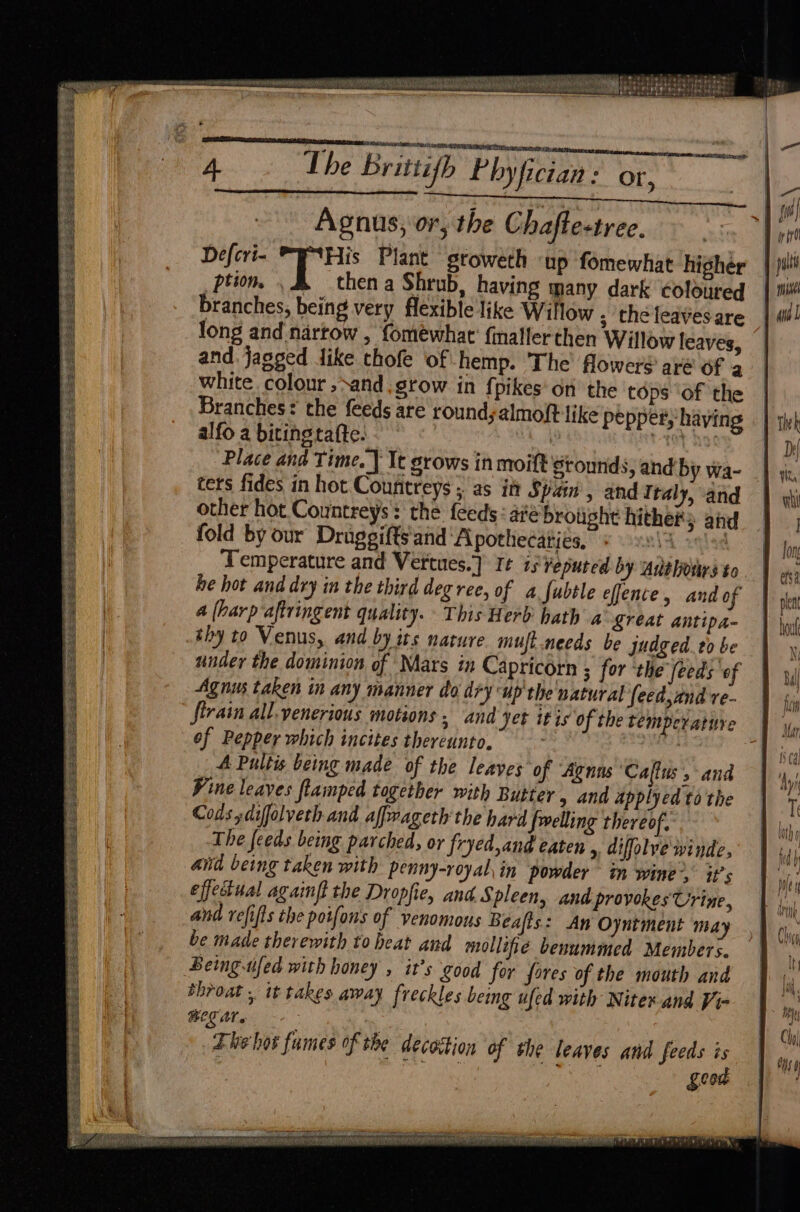 4 The Brittiſh Phyſician: or,
Agnus, or, the Chaſte-tree.
Deſcri- THis Plant groweth up ſomewhat higher
ption. then a Shrub, having many dark coloured
branches, being very flexible like Willow, the leaves are
long and narrow, ſomewhat ſmaller then Willow leaves,
and jagged like thoſe of hemp. The flowers are of a
white colour, and grow in ſpikes on the tops of the
Branches: the ſeeds are round, almoſt like pepper, having
alſo a biting taſte.
Place and Time.] It grows in moiſt grounds, and by wa-
ters ſides in hot Countreys; as in Spain, and Italy, and
other hot Countreys: the ſeeds are brought hither, and
ſold by our Druggiſts and Apothecaries.
Temperature and Vertues.] It is reputed by Authours to
be hot and dry in the third degree, of a ſubtle eſſence, and of
a ſharp aſtringent quality. This Herb hath a great antipa-
thy to Venus, and by its nature muſt needs be judged to be
under the dominion of Mars in Capricorn; for the ſeeds of
Agnus taken in any manner do dry up the natural ſeed, and re-
ſtrain all venerious motions, and yet it is of the temperature
of Pepper which incites thereunto.
A Pultis being made of the leaves of Agnus Caſtus, and
Vine leaves ſtamped together with Butter, and applyed to the
Cods, diſſolveth and aſſwageth the hard ſwelling thereof.
The ſeeds being parched, or fryed, and eaten, diſſolve winde,
and being taken with penny-royal, in powder in wine, it's
effectual againſt the Dropſie, and Spleen, and provokes Urine,
and reſiſts the poiſons of venomous Beaſts: An Oyntment may
be made therewith to heat and mollifie benummed Members.
Being uſed with honey, it's good for ſores of the mouth and
throat, it takes away freckles being uſed with Niter and Vi-
negar.
The hot fumes of the decoction of the leaves and ſeeds is
good